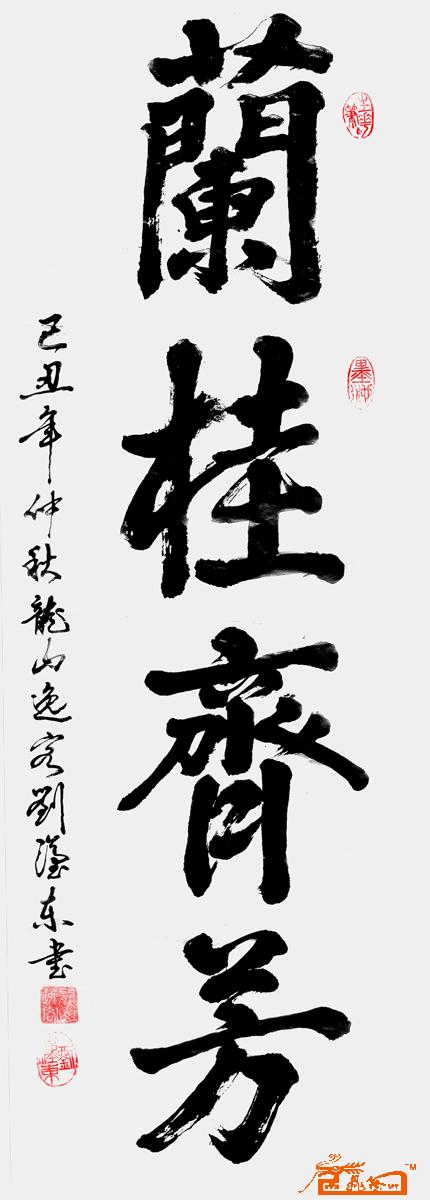 蘭桂齊芳
己丑年仲秋龍山逸客劉瀅東书